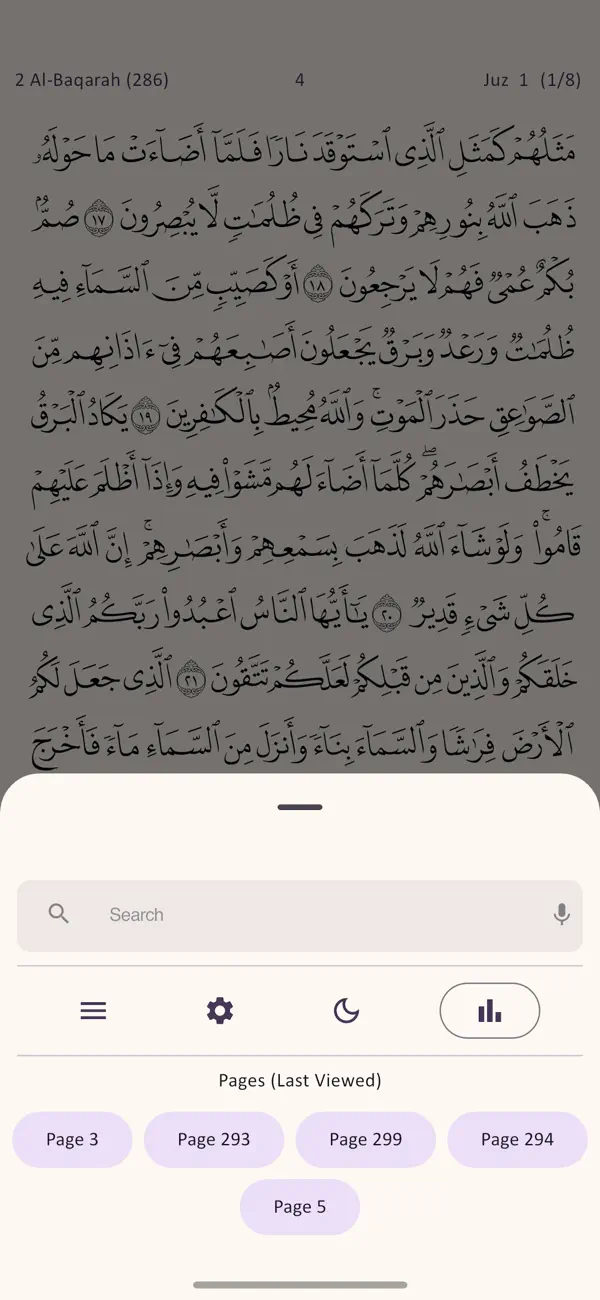 2 Al-Baqarah (286) 4 Juz 1 (1/8)
مَثَلُهُمْ كَمَثَلِ ٱلَّذِى ٱسْتَوْقَدَ نَارًا فَلَمَّآ أَضَآءَتْ مَا حَوْلَهُۥ
ذَهَبَ ٱللَّهُ بِنُورِهِمْ وَتَرَكَهُمْ فِى ظُلُمَٰتٍ لَّا يُبْصِرُونَ ١٧ صُمٌّۢ
بُكْمٌ عُمْىٌ فَهُمْ لَا يَرْجِعُونَ ١٨ أَوْ كَصَيِّبٍ مِّنَ ٱلسَّمَآءِ فِيهِ
ظُلُمَٰتٌ وَرَعْدٌ وَبَرْقٌ يَجْعَلُونَ أَصَٰبِعَهُمْ فِىٓ ءَاذَانِهِم مِّنَ
ٱلصَّوَٰعِقِ حَذَرَ ٱلْمَوْتِ ۚ وَٱللَّهُ مُحِيطٌۢ بِٱلْكَٰفِرِينَ ١٩ يَكَادُ ٱلْبَرْقُ
يَخْطَفُ أَبْصَٰرَهُمْ ۖ كُلَّمَآ أَضَآءَ لَهُم مَّشَوْا۟ فِيهِ وَإِذَآ أَظْلَمَ عَلَيْهِمْ
قَامُوا۟ ۚ وَلَوْ شَآءَ ٱللَّهُ لَذَهَبَ بِسَمْعِهِمْ وَأَبْصَٰرِهِمْ ۚ إِنَّ ٱللَّهَ عَلَىٰ
كُلِّ شَىْءٍ قَدِيرٌ ٢٠ يَٰٓأَيُّهَا ٱلنَّاسُ ٱعْبُدُوا۟ رَبَّكُمُ ٱلَّذِى
خَلَقَكُمْ وَٱلَّذِينَ مِن قَبْلِكُمْ لَعَلَّكُمْ تَتَّقُونَ ٢١ ٱلَّذِى جَعَلَ لَكُمُ
ٱلْأَرْضَ فِرَٰشًا وَٱلسَّمَآءَ بِنَآءً وَأَنزَلَ مِنَ ٱلسَّمَآءِ مَآءً فَأَخْرَجَ
Search
Pages (Last Viewed)
Page 3 Page 293 Page 299 Page 294
Page 5